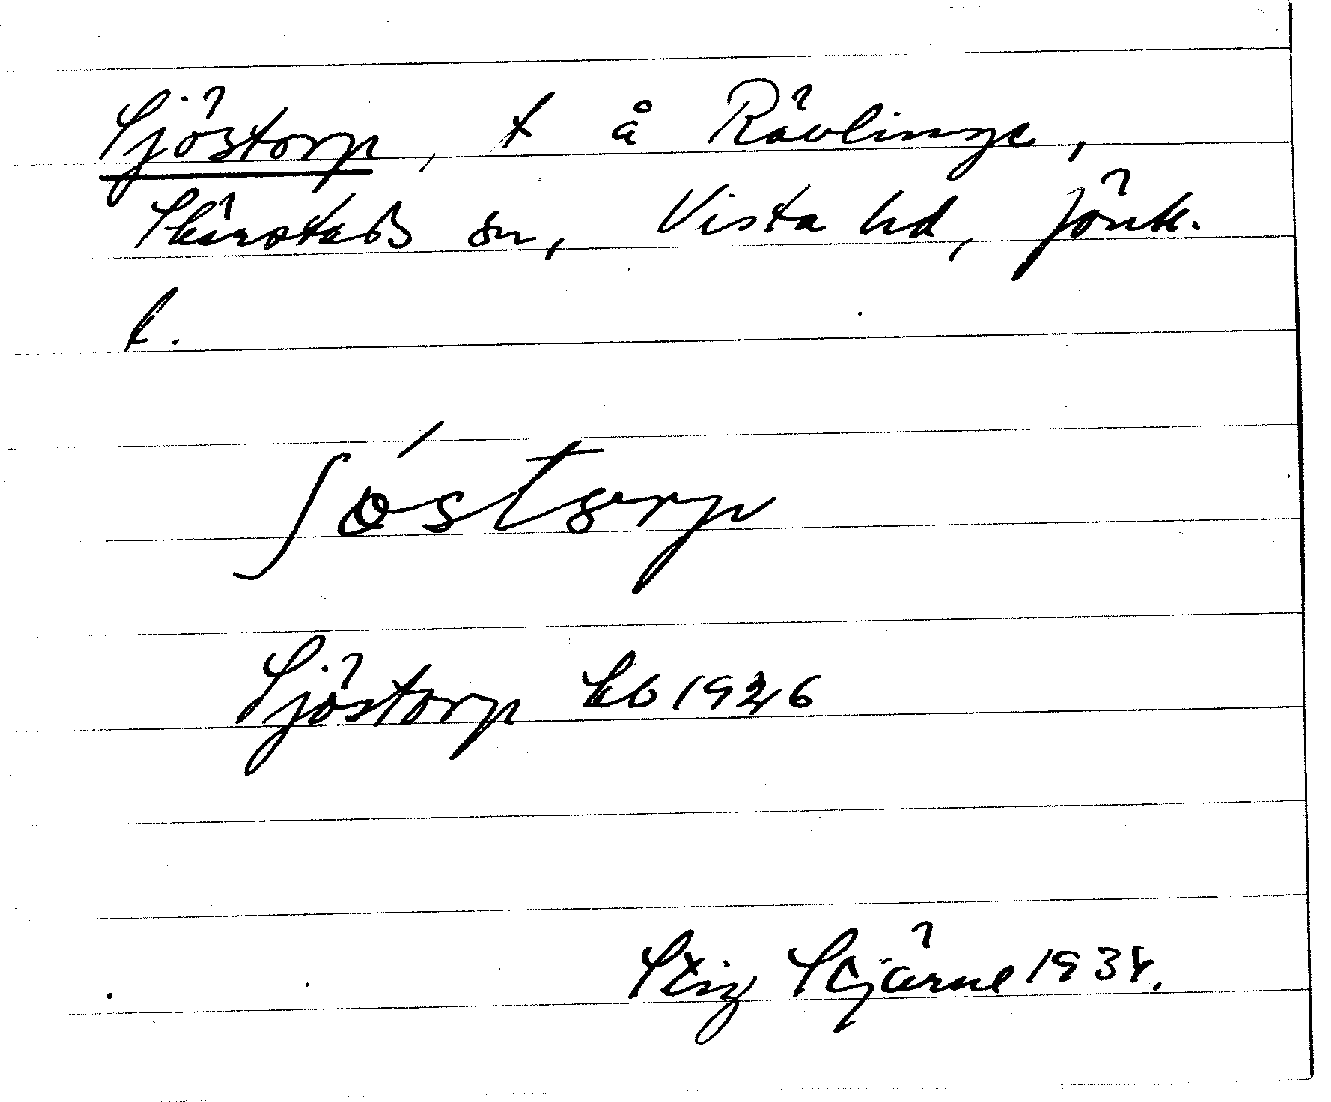 Sjöstorp, t å Rävlinge,
Skärstads sn, Vista hd, Jönk.
l.
ʃóstorp
Sjöstorp kb 1926
Stig Stjärne 1934.